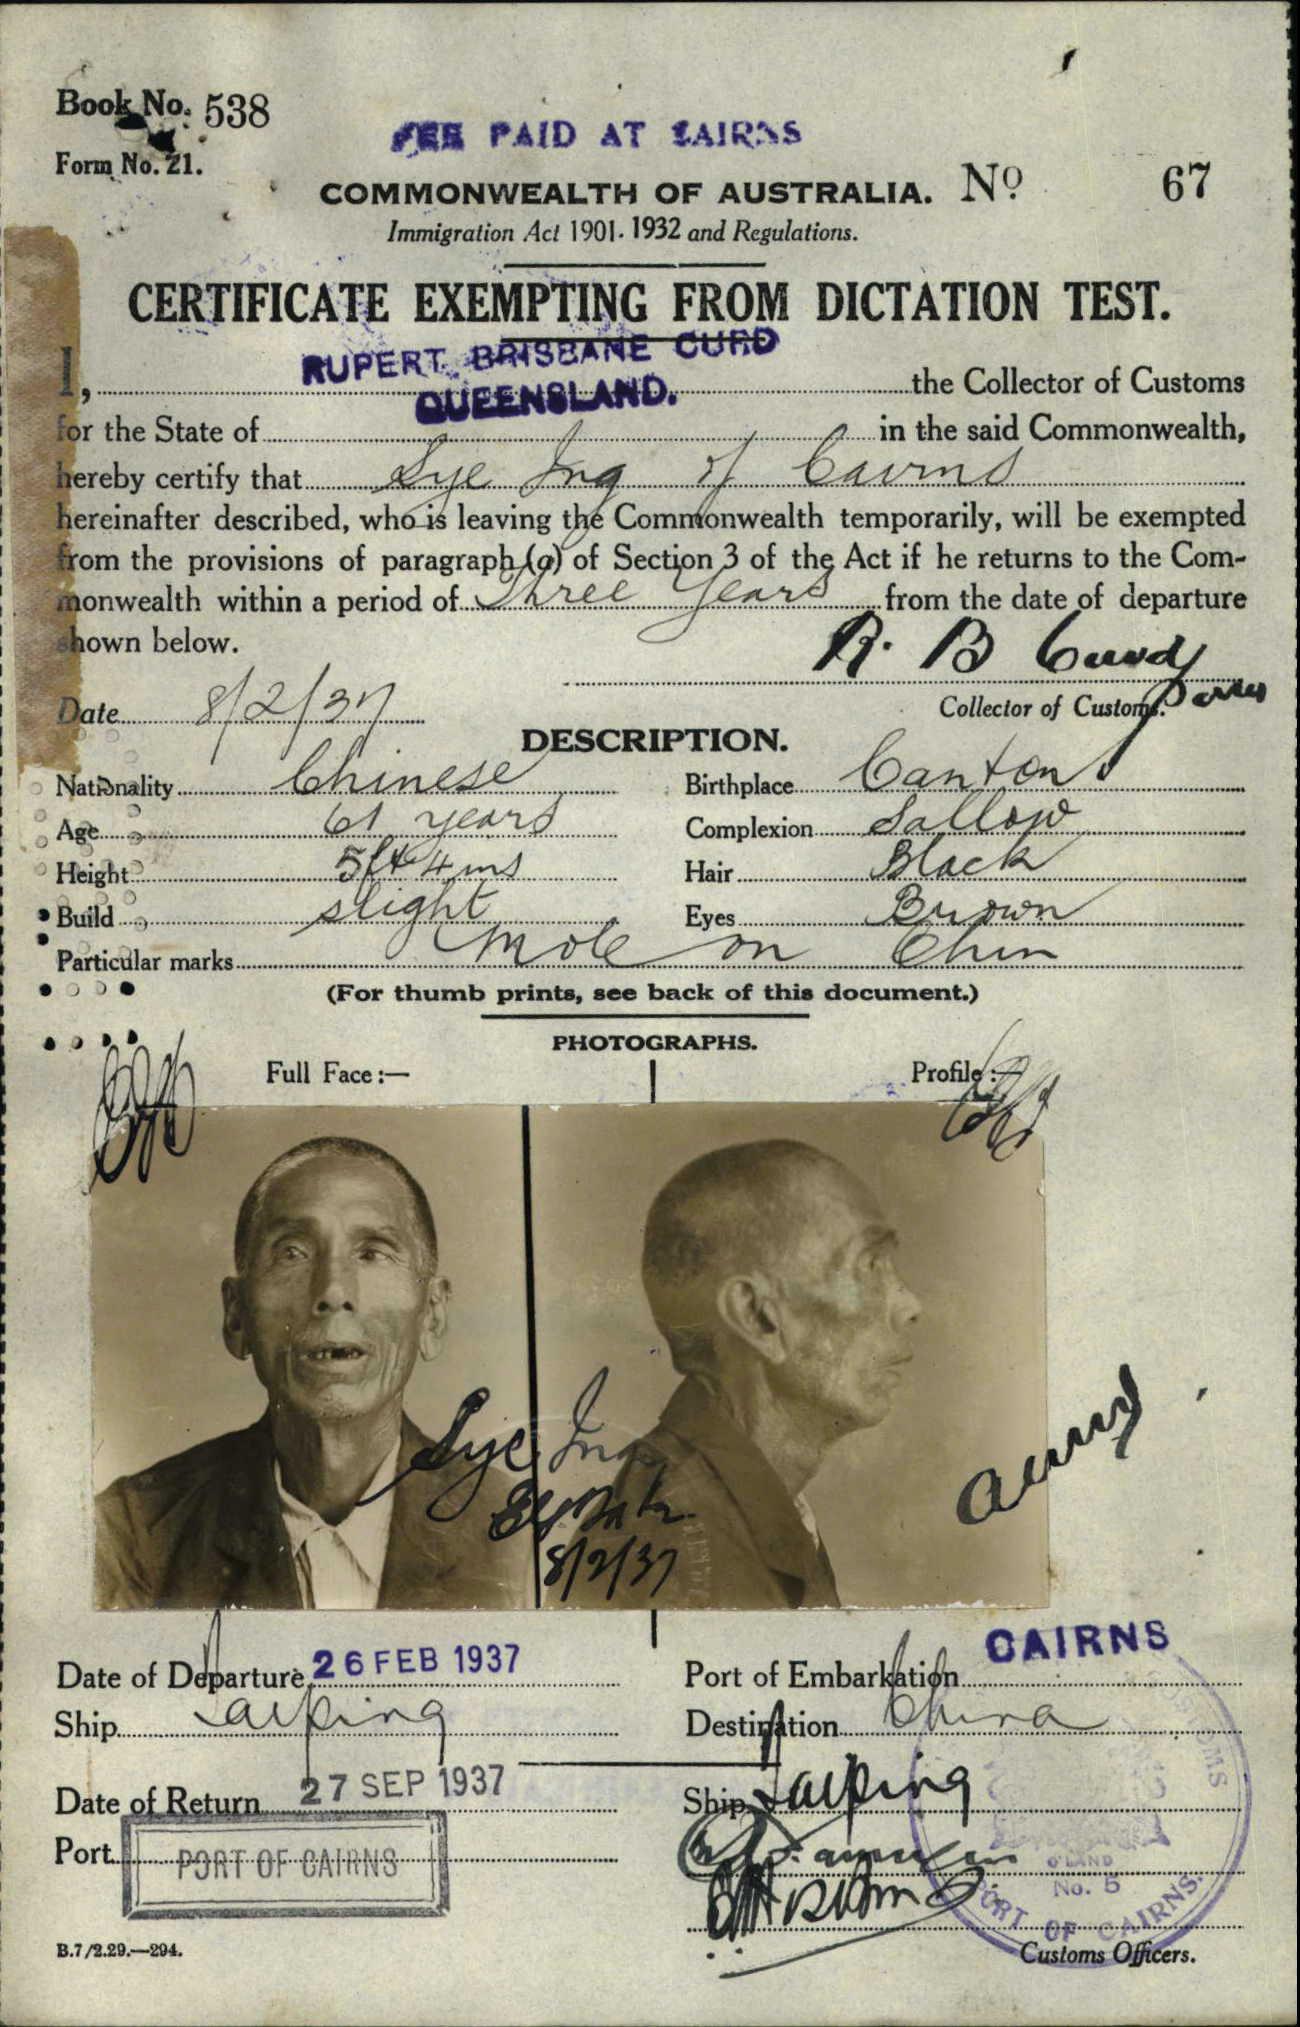 Book No. 538
FEE PAID AT CAIRNS
Form No. 21.
COMMONWEALTH OF AUSTRALIA. No 67
Immigration Act 1901-1932 and Regulations.
CERTIFICATE EXEMPTING FROM DICTATION TEST.
RUPERT BRISBANE CURD
I, the Collector of Customs
QUEENSLAND.
for the State of in the said Commonwealth,
hereby certify that Sye Ing of Cairns
hereinafter described, who is leaving the Commonwealth temporarily, will be exempted
from the provisions of paragraph (a) of Section 3 of the Act if he returns to the Com-
monwealth within a period of Three Years from the date of departure
shown below.
R. B Curd
Date 8/2/37
Collector of Customs.
DESCRIPTION.
Nationality Chinese Birthplace Canton
Age 61 years Complexion Sallow
Height 5ft 4ins Hair Black
Build slight Eyes Brown
Particular marks Mole on Chin
(For thumb prints, see back of this document.)
PHOTOGRAPHS.
Full Face:— Profile:—
Sye Ing
8/2/37
Date of Departure 26 FEB 1937 Port of Embarkation CAIRNS
Ship Taiping Destination China
Date of Return 27 SEP 1937 Ship Taiping
Port PORT OF CAIRNS
Q'LAND
No. 5
PORT OF CAIRNS.
B.7/2.29.—294. Customs Officers.